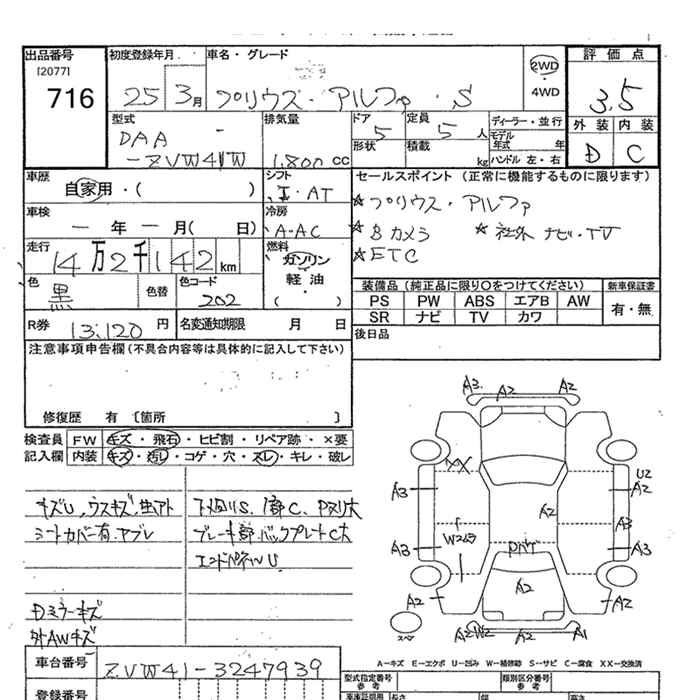 出品番号
[2077]
716
初度登録年月 車名・グレード
25 3月 プリウス・アルファ・S
2WD
4WD
評価点
3.5
外装 内装
D C
型式 排気量 ドア 定員 ディーラー・並行
DAA - 5 5人 モデル年式 年
-ZVW41W 1,800cc 形状 積載 kg ハンドル 左・右
車歴 シフト
自家用・( ) I・AT
車検 冷房
一年一月( 日) A-AC
走行 燃料
14万2千142km ガソリン
軽油
( )
色 色替 色コード
黒 202
R券 13,120円 名変通知期限 月 日
セールスポイント (正常に機能するものに限ります)
★プリウス・アルファ
★Bカメラ ★社外ナビ・TV
★ETC
装備品 (純正品に限り〇をつけてください) 新車保証書
PS PW ABS エアB AW 有・無
SR ナビ TV カワ
後日品
注意事項申告欄 (不具合内容等は具体的に記入して下さい)
修復歴 有 [箇所 ]
検査員 FW キズ・飛石・ヒビ割・リペア跡・×要
記入欄 内装 キズ・汚レ・コゲ・穴・スレ・キレ・破レ
キズU,ウスキズ,
シートカバー有,ヤブレ
下廻りS.
ブレーキ部.バックプレートC大
エンドパネルU
Dミラーキズ
外AWキズ
A3 A2 A2
XX
A3 U2 A2
A2
W2ムラ A3
A3 A3
A2
A2 A2
スペア
A2 W2 A1
A-キズ E-エクボ U-凹み W-補修跡 S-サビ C-腐食 XX-交換済
車台番号 ZVW41-3247939
登録番号
型式指定番号 参考 類別区分番号 参考
長さ 幅 高さ